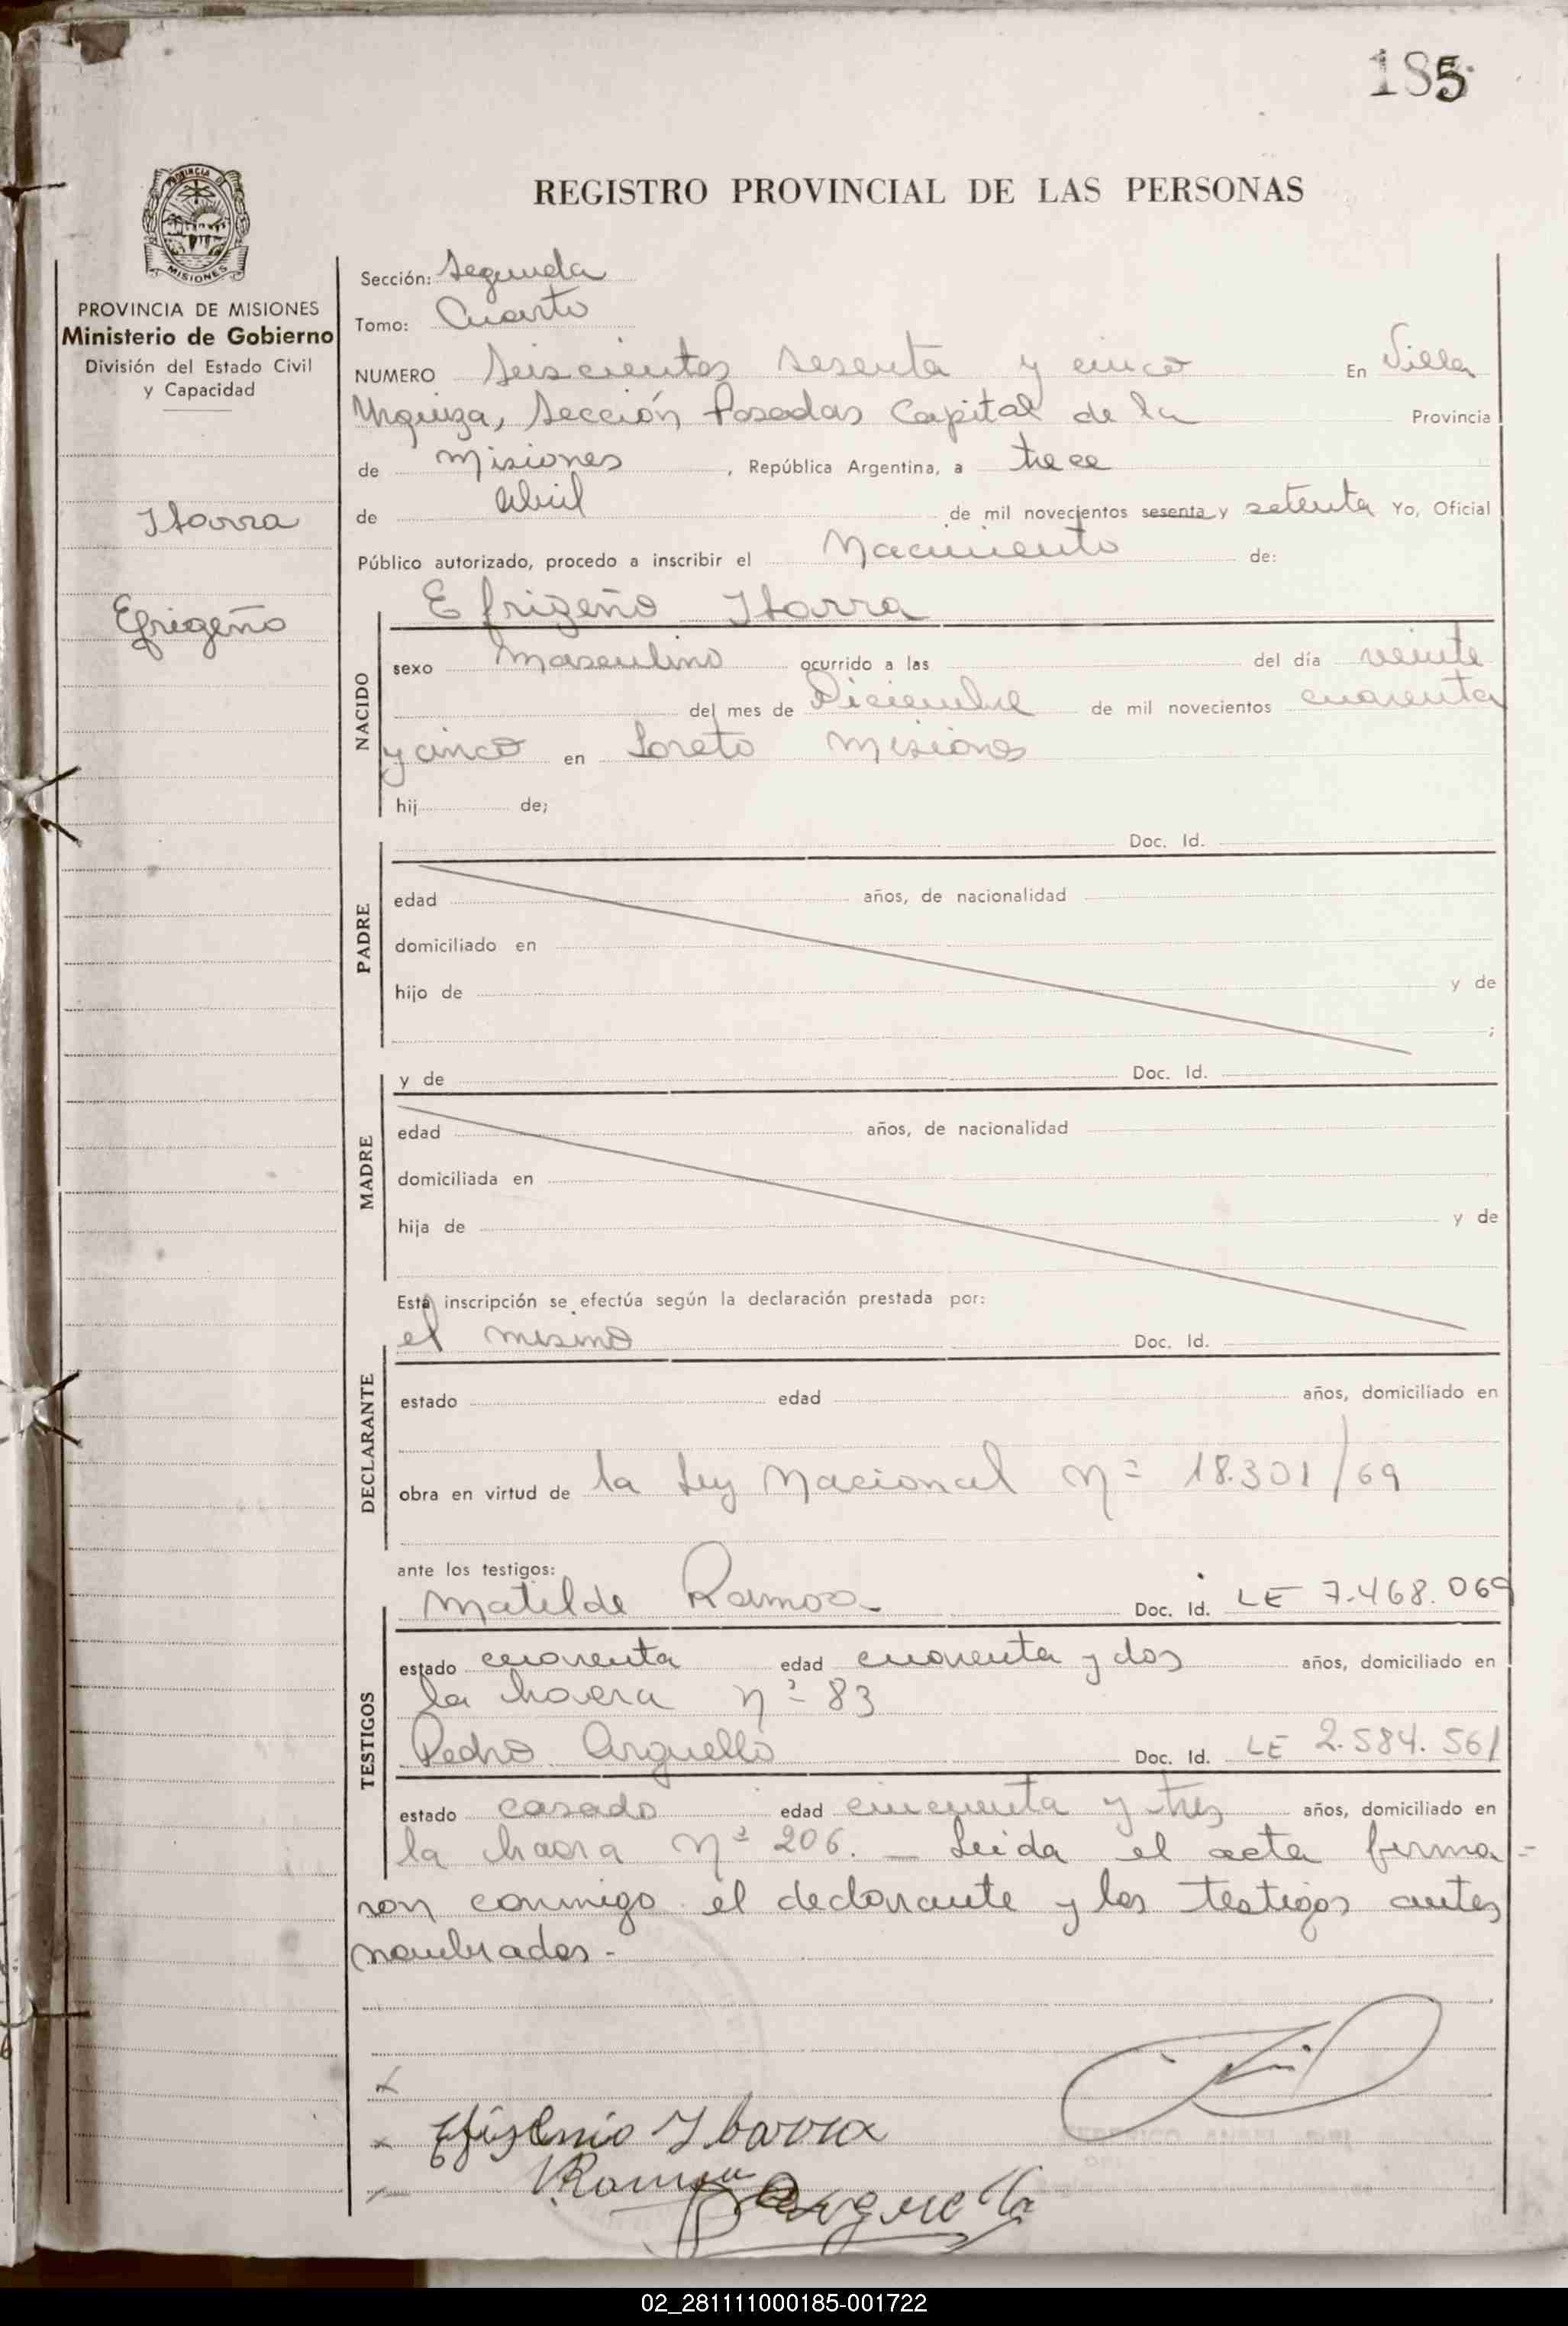 185
REGISTRO PROVINCIAL DE LAS PERSONAS
PROVINCIA DE MISIONES
PROVINCIA DE MISIONES
Ministerio de Gobierno
División del Estado Civil
y Capacidad
Ibarra
Efrigeño
Sección: Segunda
Tomo: Cuarto
NUMERO Seiscientos sesenta y cinco En Villa
Urquiza, Sección Posadas Capital de la Provincia
de Misiones, República Argentina, a trece
de abril de mil novecientos sesenta y setenta Yo, Oficial
Público autorizado, procedo a inscribir el Nacimiento de:
Efrigeño Ibarra
NACIDO
sexo Masculino ocurrido a las del día veinte
del mes de Diciembre de mil novecientos cuarenta
y cinco en Loreto Misiones
hij de;
Doc. Id.
PADRE
edad años, de nacionalidad
domiciliado en
hijo de y de
;
MADRE
y de Doc. Id.
edad años, de nacionalidad
domiciliada en
hija de y de
Está inscripción se efectúa según la declaración prestada por:
el mismo Doc. Id.
DECLARANTE
estado edad años, domiciliado en
obra en virtud de la Ley Nacional nº 18.301/69
ante los testigos:
Matilde Ramos Doc. Id. LE 7.468.069
TESTIGOS
estado cuarenta edad cuarenta y dos años, domiciliado en
la chacra nº 83
Pedro Arguello Doc. Id. LE 2.584.561
estado casado edad cincuenta y tres años, domiciliado en
la chacra nº 206. – Leida el acta firma-
ron conmigo el declarante y los testigos antes
nombrados -
Ibarra
02_281111000185-001722